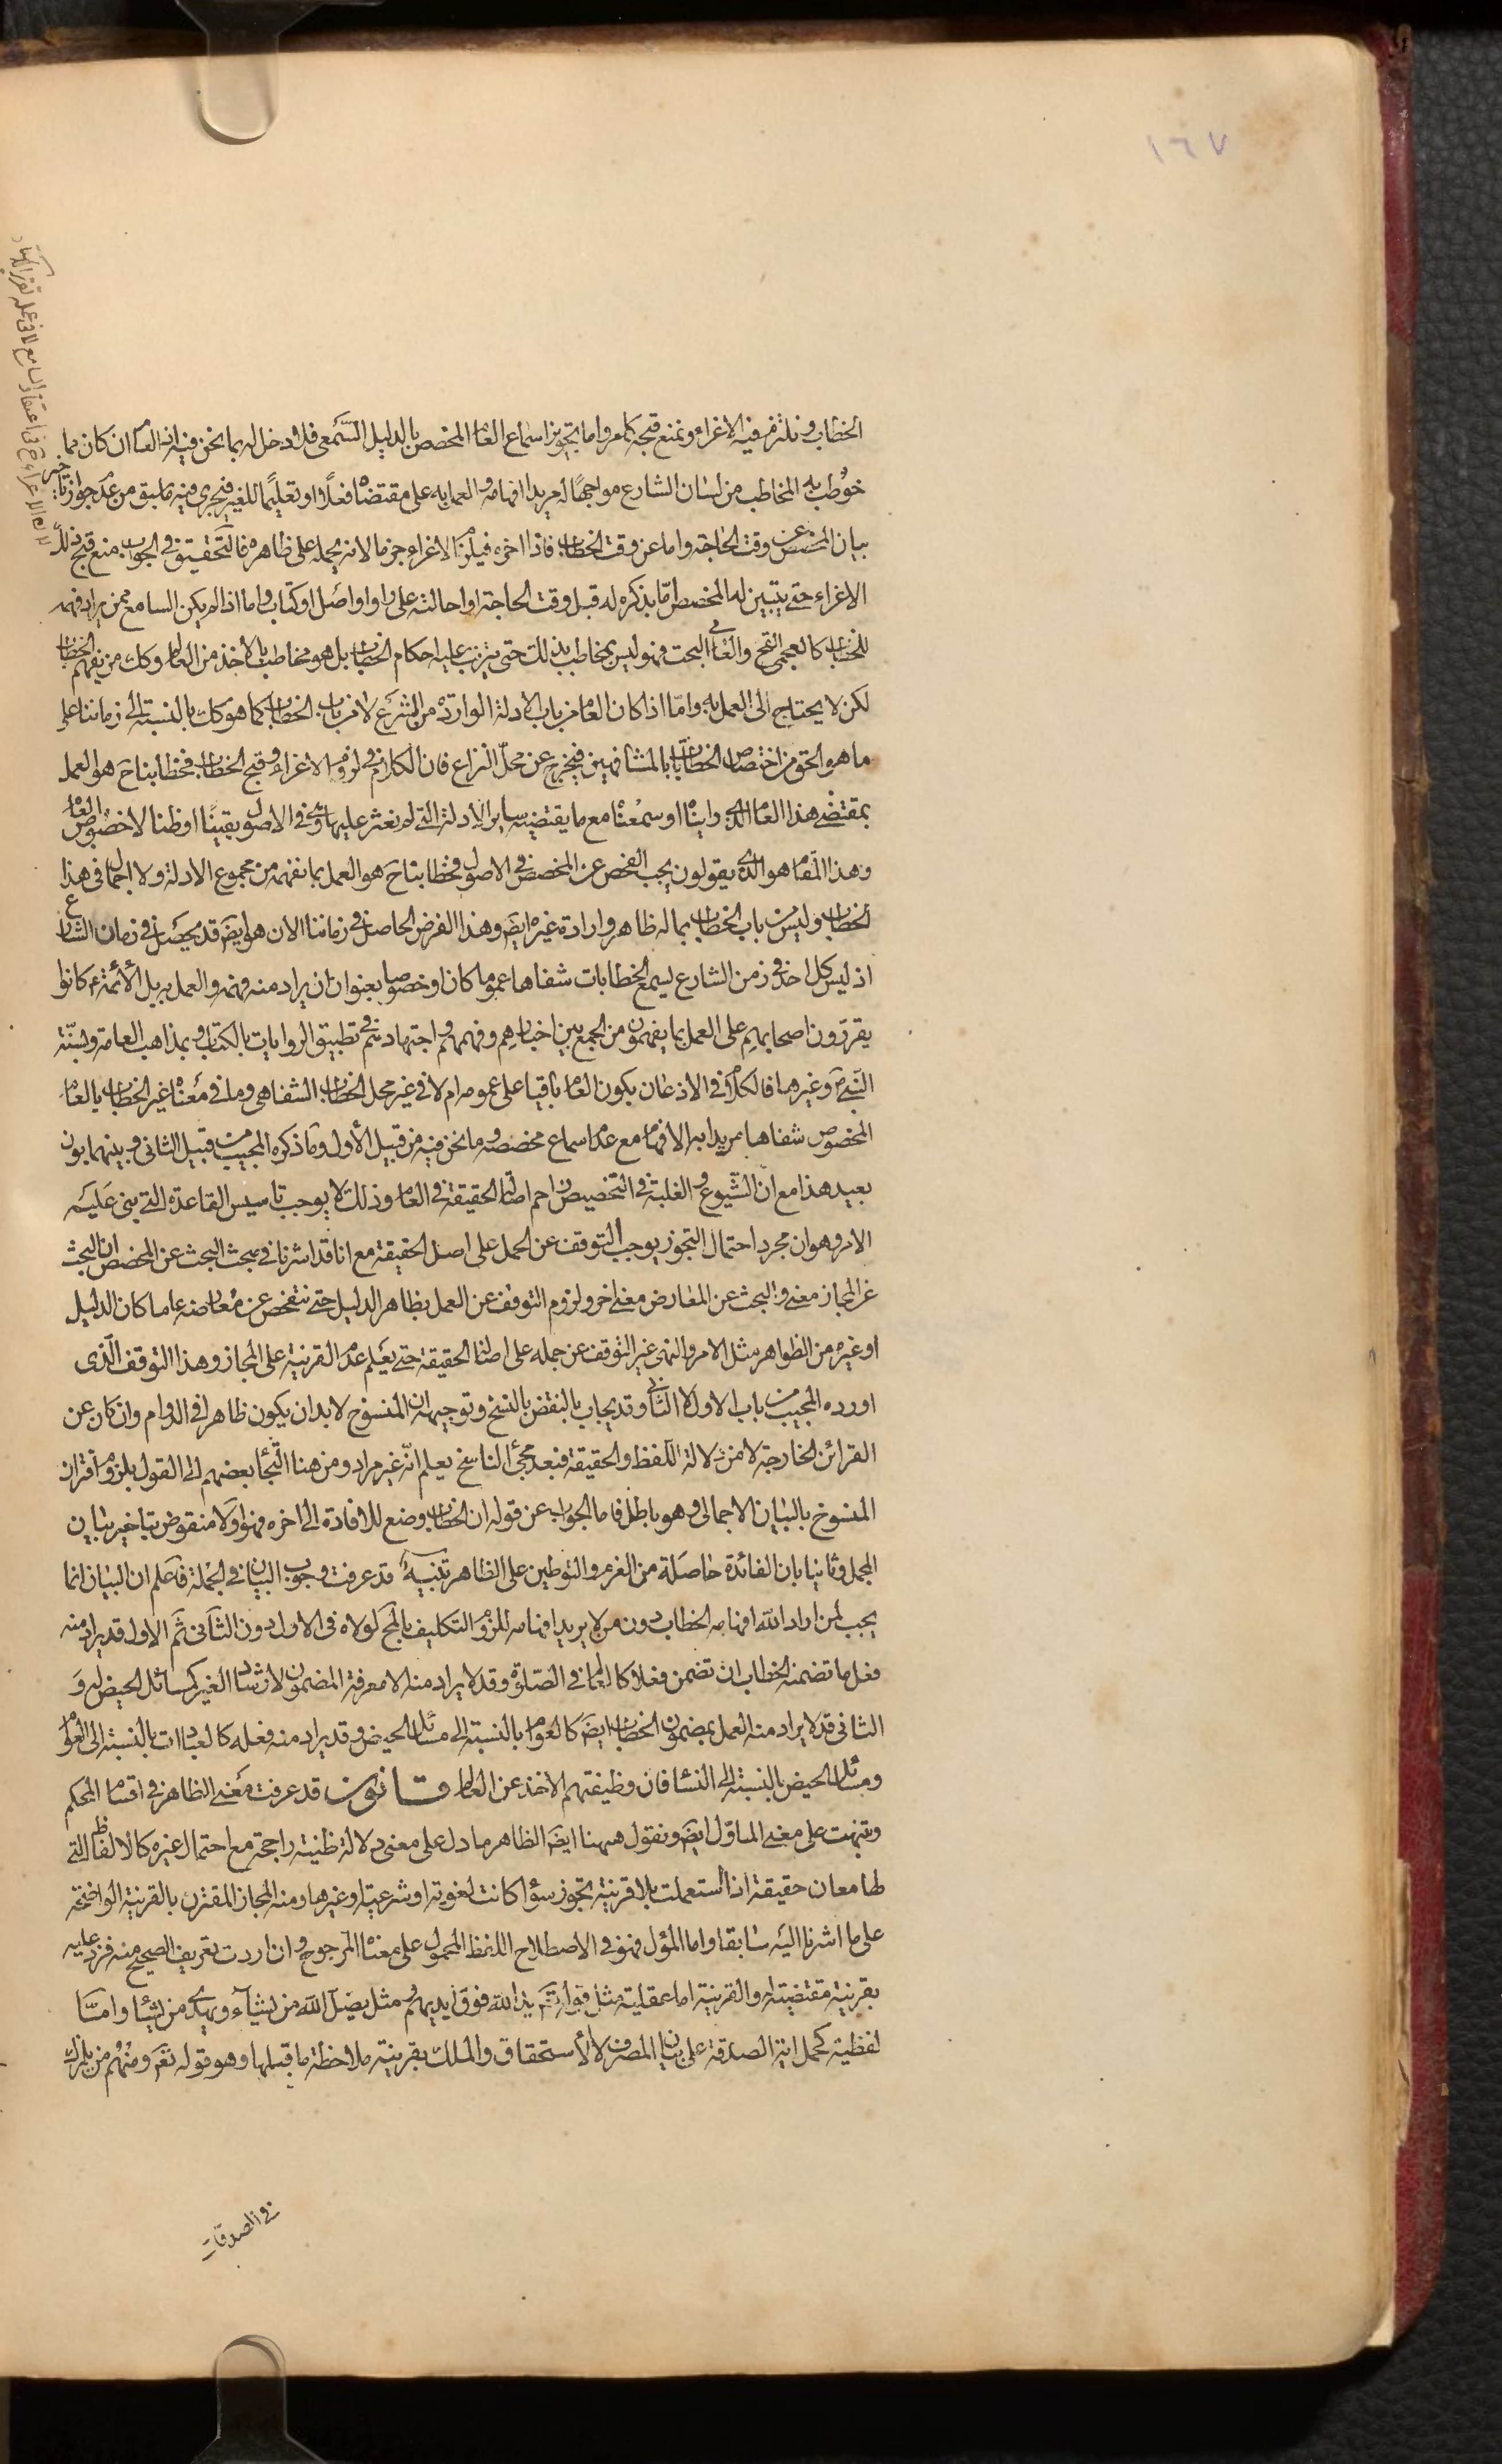 ١٦٧
الخطاب ونلتزم فيه الاغراء ونمنع قبحه كما مر واما تجويز اسماع العام المخصص بالدليل السمعى فلا دخل له بما نحن فيه اذ العام ان كان مما
خوطب به المخاطب من لسان الشارع مواجها له مريدا افهامه والعمل به على مقتضاه فعلا او تعليما للغير فيجرى فيه ما سبق من عدم جواز تاخير
بيان المخصص عن وقت الحاجة واما عن وقت الخطاب فاذا اخره فيلزم الاغراء جزما لانه يحمله على ظاهره فالتحقيق فى الجواب منع قبح ذلك
الاغراء حتى يتبين له المخصص امّا بذكره له قبل وقت الحاجة او احالته على راو او اصل او كتاب واما اذا لم يكن السامع ممن يراد فهمه
للخطاب كالعجمى القح والعامى البحت فهو ليس بمخاطب بذلك حتى يترتب عليه احكام الخطاب بل هو مخاطب بالاخذ من العالم وكك من يفهم الخطاب
لكن لا يحتاج الى العمل به وامّا اذا كان العام من باب الادلة الواردة من الشرع لا من باب الخطاب كما هو كك بالنسبة الى زماننا على
ما هو الحق من اختصاص الخطابات بالمشافهين فيخرج عن محل النزاع فان الكلام فى لزوم الاغراء وقبح الخطاب فخطابنا ح هو العمل
بمقتضى هذا العام الذى راينا او سمعنا مع ما يقتضيه ساير الادلة التى لم نعثر عليها وهى فى الاصول يقينا او ظنا لا خصوص العام
وهذا المقام هو الذى يقولون يجب الفحص عن المخصص فى الاصول فخطابنا ح هو العمل بما نفهمه من مجموع الادلة ولا اجمال فى هذا
الخطاب وليس من باب الخطاب بما له ظاهر وارادة غيره ايض وهذا الفرض الحاصل فى زماننا الان هو ايض قد يحصل فى زمان الشارع
اذ ليس كل احد فى زمن الشارع يسمع الخطابات شفاها عموما كان او خصوصا بعنوان ان يراد منه فهمه والعمل به بل الأئمة ع كانوا
يقررون اصحابهم على العمل بما يفهمون من الجمع بين اخبارهم وفهمهم واجتهادهم فى تطبيق الروايات بالكتاب وبمذاهب العامة وسنّة
النبى ص وغيرها فالكلام فى الاذعان بكون العام باقيا على عمومه ام لا فى غير محل الخطاب الشفاهى وما فى معناه غير الخطاب بالعام
المخصوص شفاها مريدا به الافهام مع عدم اسماع مخصصه وما نحن فيه من قبيل الأول وما ذكره المجيب من قبيل الثانى وبينهما بون
بعيد هذا مع انّ الشيوع والغلبة فى التخصيص زاحم اصالة الحقيقة فى العام وذلك لا يوجب تاسيس القاعدة التى بنى عليه
الامر وهو ان مجرد احتمال التجوز يوجب التوقف عن الحمل على اصل الحقيقة مع انا قد اشرنا فى مبحث البحث عن المخصص ان البحث
عن المجاز معنى والبحث عن المعارض معنى اخر ولزوم التوقف عن العمل بظاهر الدليل حتى نتفحص عن معارضه عاما كان الدليل
او غيره من الظواهر مثل الامر والنهى غير التوقف عن حمله على اصالة الحقيقة حتى يعلم عدم القرينة على المجاز وهذا التوقف الذى
اورده المجيب من باب الاول لا الثانى وقد يجاب بالنقض بالنسخ وتوجيهه ان المنسوخ لابد ان يكون ظاهرا فى الدوام وان كان عن
القرائن الخارجة لا من دلالة اللفظ والحقيقة فبعد مجئ الناسخ يعلم انّه غير مراد ومن هنا التجأ بعضهم الى القول بلزوم اقتران
المنسوخ بالبيان الاجمالى وهو باطل فاما الجواب عن قوله ان الخطاب وضع للافادة الى اخره فهو اولا منقوض بتاخير بيان
المجمل وثانيا بان الفائدة حاصلة من العزم والتوطين على الظاهر تنبيه قد عرفت وجوب البيان فى الجملة فاعلم ان البيان انما
يجب لمن اراد الله افهامه الخطاب دون من لا يريد افهامه للزوم التكليف بالمح لولاه فى الاول دون الثانى ثم الاول قد يراد منه
فعل ما تضمنه الخطاب ان تضمن فعلا كالعالم فى الصلوة وقد لا يراد منه الا معرفة المضمون لارشاد الغير كمسائل الحيض له و
الثانى قد لا يراد منه العمل بمضمون الخطاب ايض كالعوام بالنسبة الى مسائل الحيض وقد يراد منه فعله كالعبادات بالنسبة الى العوام
ومسائل الحيض بالنسبة الى النساء فان وظيفتهم الاخذ عن العالم قانون قد عرفت معنى الظاهر فى اقسام المحكم
وتنبهت على معنى الماوّل ايض ونقول ههنا ايض الظاهر ما دل على معنى دلالة ظنية راجحة مع احتمال غيره كالالفاظ التى
لها معان حقيقة اذا استعملت بلا قرينة تجوز سواء كانت لغوية او شرعية او غيرها ومنه المجاز المقترن بالقرينة الواضحة
على ما اشرنا اليه سابقا واما المؤل فهو فى الاصطلاح اللفظ المحمول على معناه المرجوح وان اردت تعريف الصحيح منه فزد عليه
بقرينة مقتضية له والقرينة اما عقلية مثل قوله تع يد الله فوق ايديهم ومثل يضل الله من يشاء ويهدى من يشاء وامّا
لفظية كحمل اية الصدقة على بيان المصرف لا الأستحقاق والملك بقرينة ملاحظة ما قبلها وهو قوله تع ومنهم من يلمزك
فى الصدقات